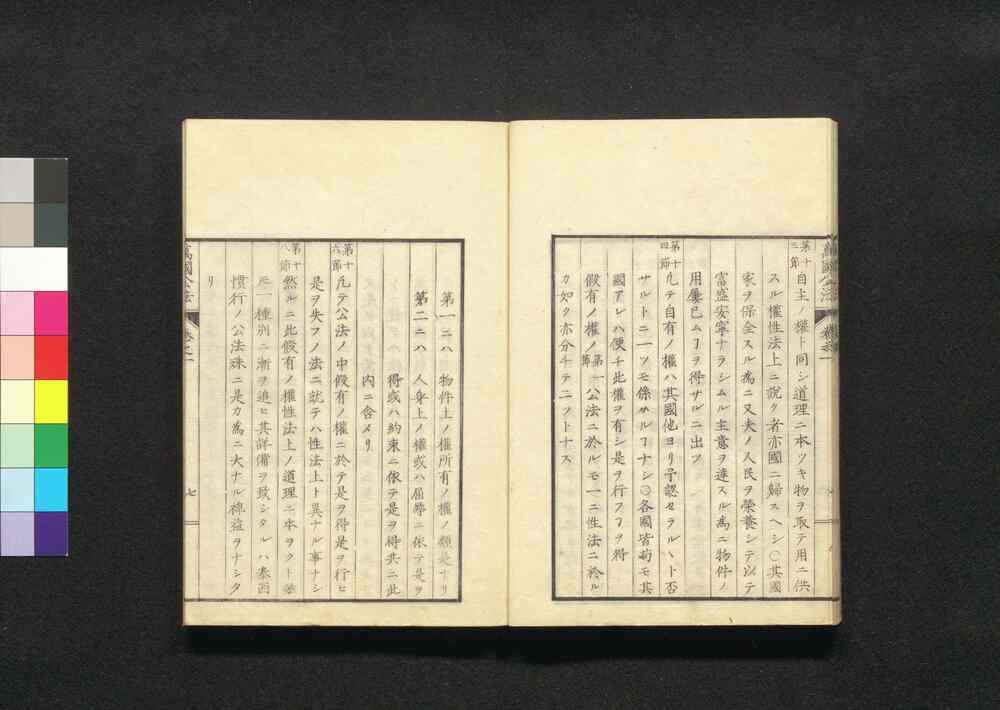 萬國公法
第十三節
自主ノ權ト同シ道理ニ本ツキ物ヲ取テ用ニ供
スル權性法上ニ說ク者亦國ニ歸スヘシ〇其國
家ヲ保全スル爲ニ又夫ノ人民ヲ榮養シテ以テ
富盛安寧ナラシムル主意ヲ達スル爲ニ物件ノ
用屢已ムヿヲ得サルニ出ツ
第十四節
凡テ自有ノ權ハ其國他ヨリ予認セラルヽト否
サルトニ一ツモ係ハルヿナシ〇各國皆苟モ其
國アレハ便チ此權ヲ有シ是ヲ行フヿヲ得
假有ノ權ノ第一節公法ニ於ルモ一ニ性法ニ於ル
カ如ク亦分チテ二ツトナス
第一ニハ 物件上ノ權所有ノ權ノ類是ナリ
第二ニハ 人身上ノ權或ハ屈辱ニ依テ是ヲ
得或ハ約束ニ依テ是ヲ得共ニ此
內ニ含メリ
第十六節
凡テ公法ノ中假有ノ權ニ於テ是ヲ得是ヲ行ヒ
是ヲ失フノ法ニ就テハ性法上ト異ナル事ナシ
第十八節
然ルニ此假有ノ權性法上ノ道理ニ本ヲクト雖
𪜈一種別ニ漸ヲ追ヒ其詳備ヲ致シタルハ泰西
慣行ノ公法殊ニ是カ爲ニ大ナル裨益ヲナシタ
リ
萬國公法
卷之一
七